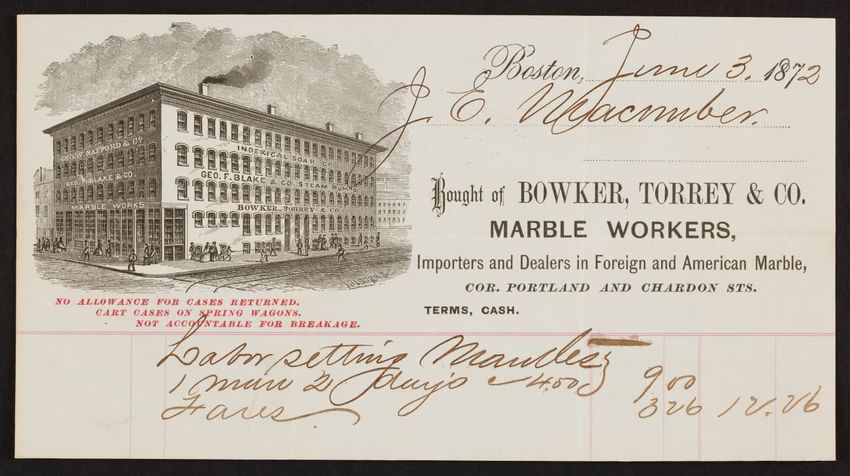 Boston, June 3. 1872
J. E. Macomber.
Bought of BOWKER, TORREY & CO.
MARBLE WORKERS,
Importers and Dealers in Foreign and American Marble,
COR. PORTLAND AND CHARDON STS.
TERMS, CASH.
SAFFORD & CO
INODERICAL SOAP CO
GEO. F. BLAKE & CO. STEAM PUMPS
GEO. F. BLAKE & CO.
BOWKER, TORREY & CO.
MARBLE WORKS
NO ALLOWANCE FOR CASES RETURNED.
CART CASES ON SPRING WAGONS.
NOT ACCOUNTABLE FOR BREAKAGE.
Labor setting Mantles
1 man 2 days 9 00
Fares 3 26 12.26